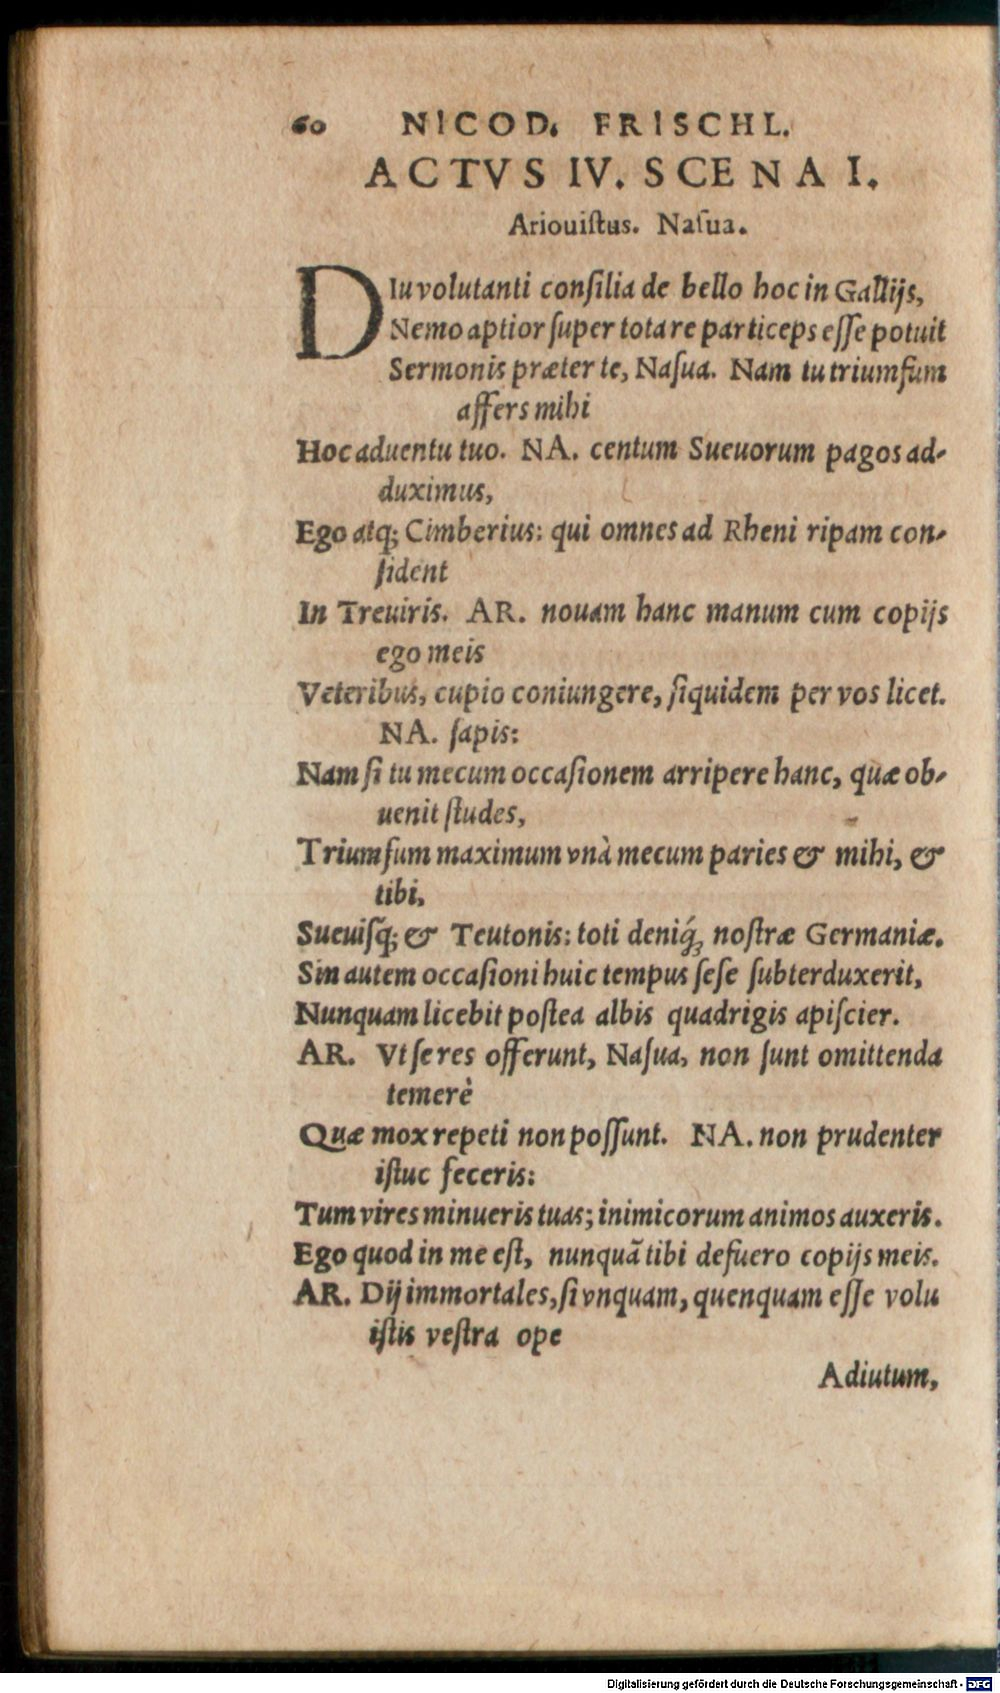 60 NICOD. FRISCHL.
ACTVS IV. SCENA I.
Ariouiſtus. Naſua.
DIu volutanti conſilia de bello hoc in Gallijs,
Nemo aptior ſuper tota re particeps eſſe potuit
Sermonis præter te, Naſua. Nam tu triumfum
affers mihi
Hoc aduentu tuo. NA. centum Sueuorum pagos ad-
duximus,
Ego atq; Cimberius: qui omnes ad Rheni ripam con-
ſident
In Treuiris. AR. nouam hanc manum cum copijs
ego meis
Veteribus, cupio coniungere, ſiquidem per vos licet.
NA. ſapis:
Nam ſi tu mecum occaſionem arripere hanc, quæ ob-
uenit ſtudes,
Triumfum maximum vnà mecum paries & mihi, &
tibi,
Sueuiſq; & Teutonis: toti deniq́; noſtræ Germaniæ.
Sin autem occaſioni huic tempus ſeſe ſubterduxerit,
Nunquam licebit poſtea albis quadrigis apiſcier.
AR. Vt ſe res offerunt, Naſua, non ſunt omittenda
temerè
Quæ mox repeti non poſſunt. NA. non prudenter
iſtuc feceris:
Tum vires minueris tuas; inimicorum animos auxeris.
Ego quod in me eſt, nunquã tibi defuero copijs meis.
AR. Dij immortales, ſi vnquam, quenquam eſſe volu
iſtis veſtra ope
Adiutum,
Digitalisierung gefördert durch die Deutsche Forschungsgemeinschaft - DFG